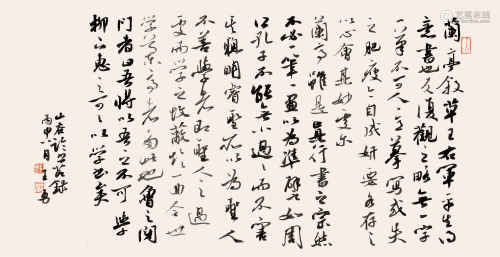 蘭亭敘草王右軍平生得
意書也反復觀之略無一字
一筆不可人意摹寫或失
之肥瘦亦自成妍要各存之
以心會其妙處爾
蘭亭雖是真行書之宗然
不必一筆一畫以為準譬如周
公孔子不能無小過過而不害
其聰明睿聖所以為聖人
不善學者即聖人之過
處而學之故蔽於一曲今世
學蘭亭者多此也魯之閉
門者曰吾將以吾之不可學
柳下惠之可可以學書矣
山谷論書錄
丙申八月